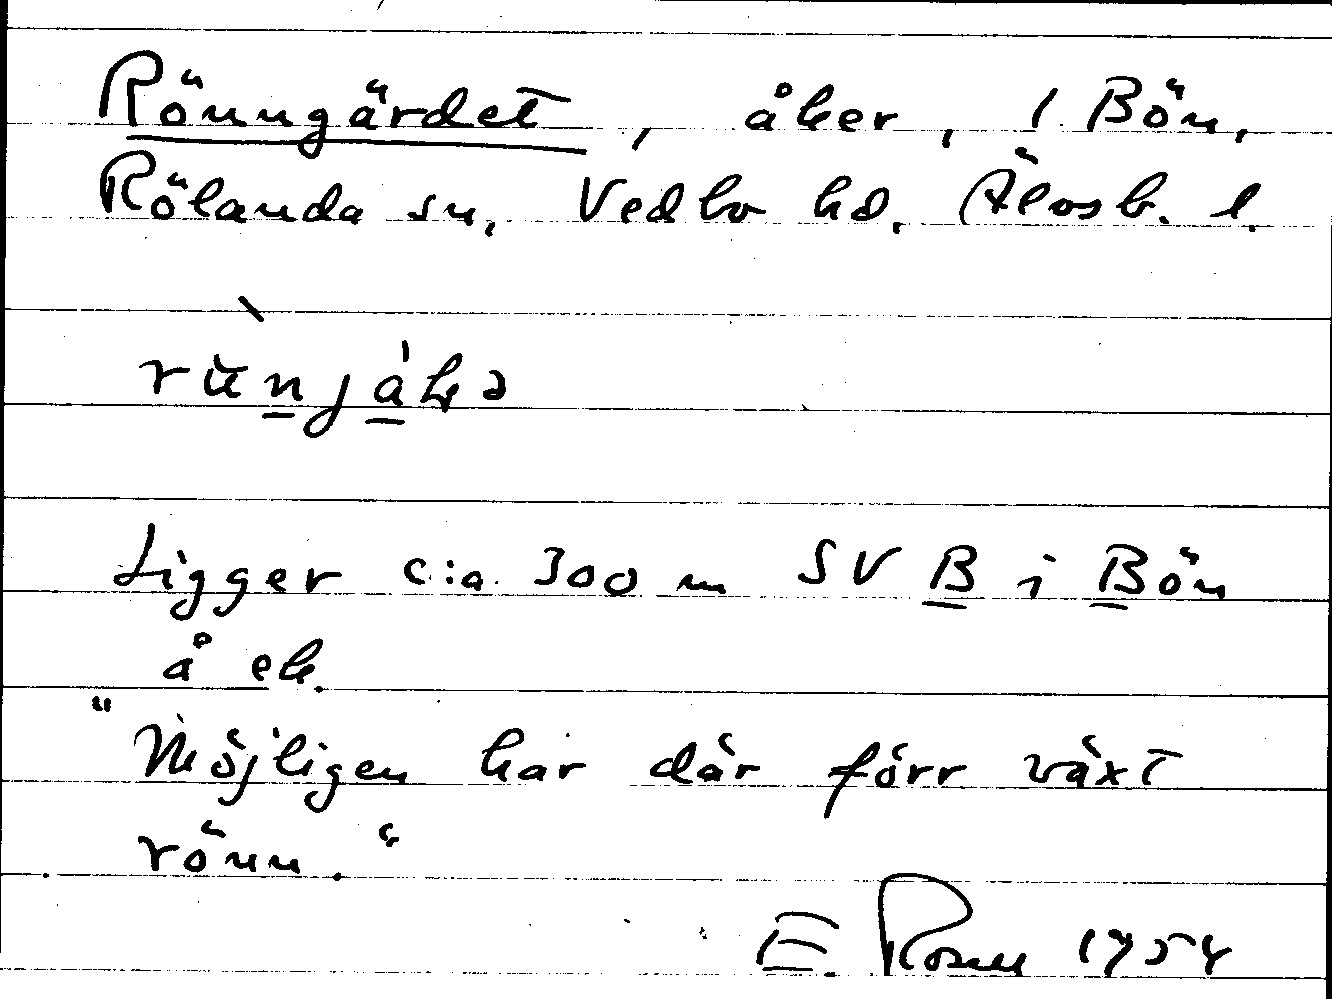 Rönngärdet, åker, i Bön,
Rölanda sn, Vedbo hd, Älvsb. l.
Ligger c:a 300 m SV B i Bön
å ek.
"Möjligen har där förr växt
rönn."
E. Rosell 1954